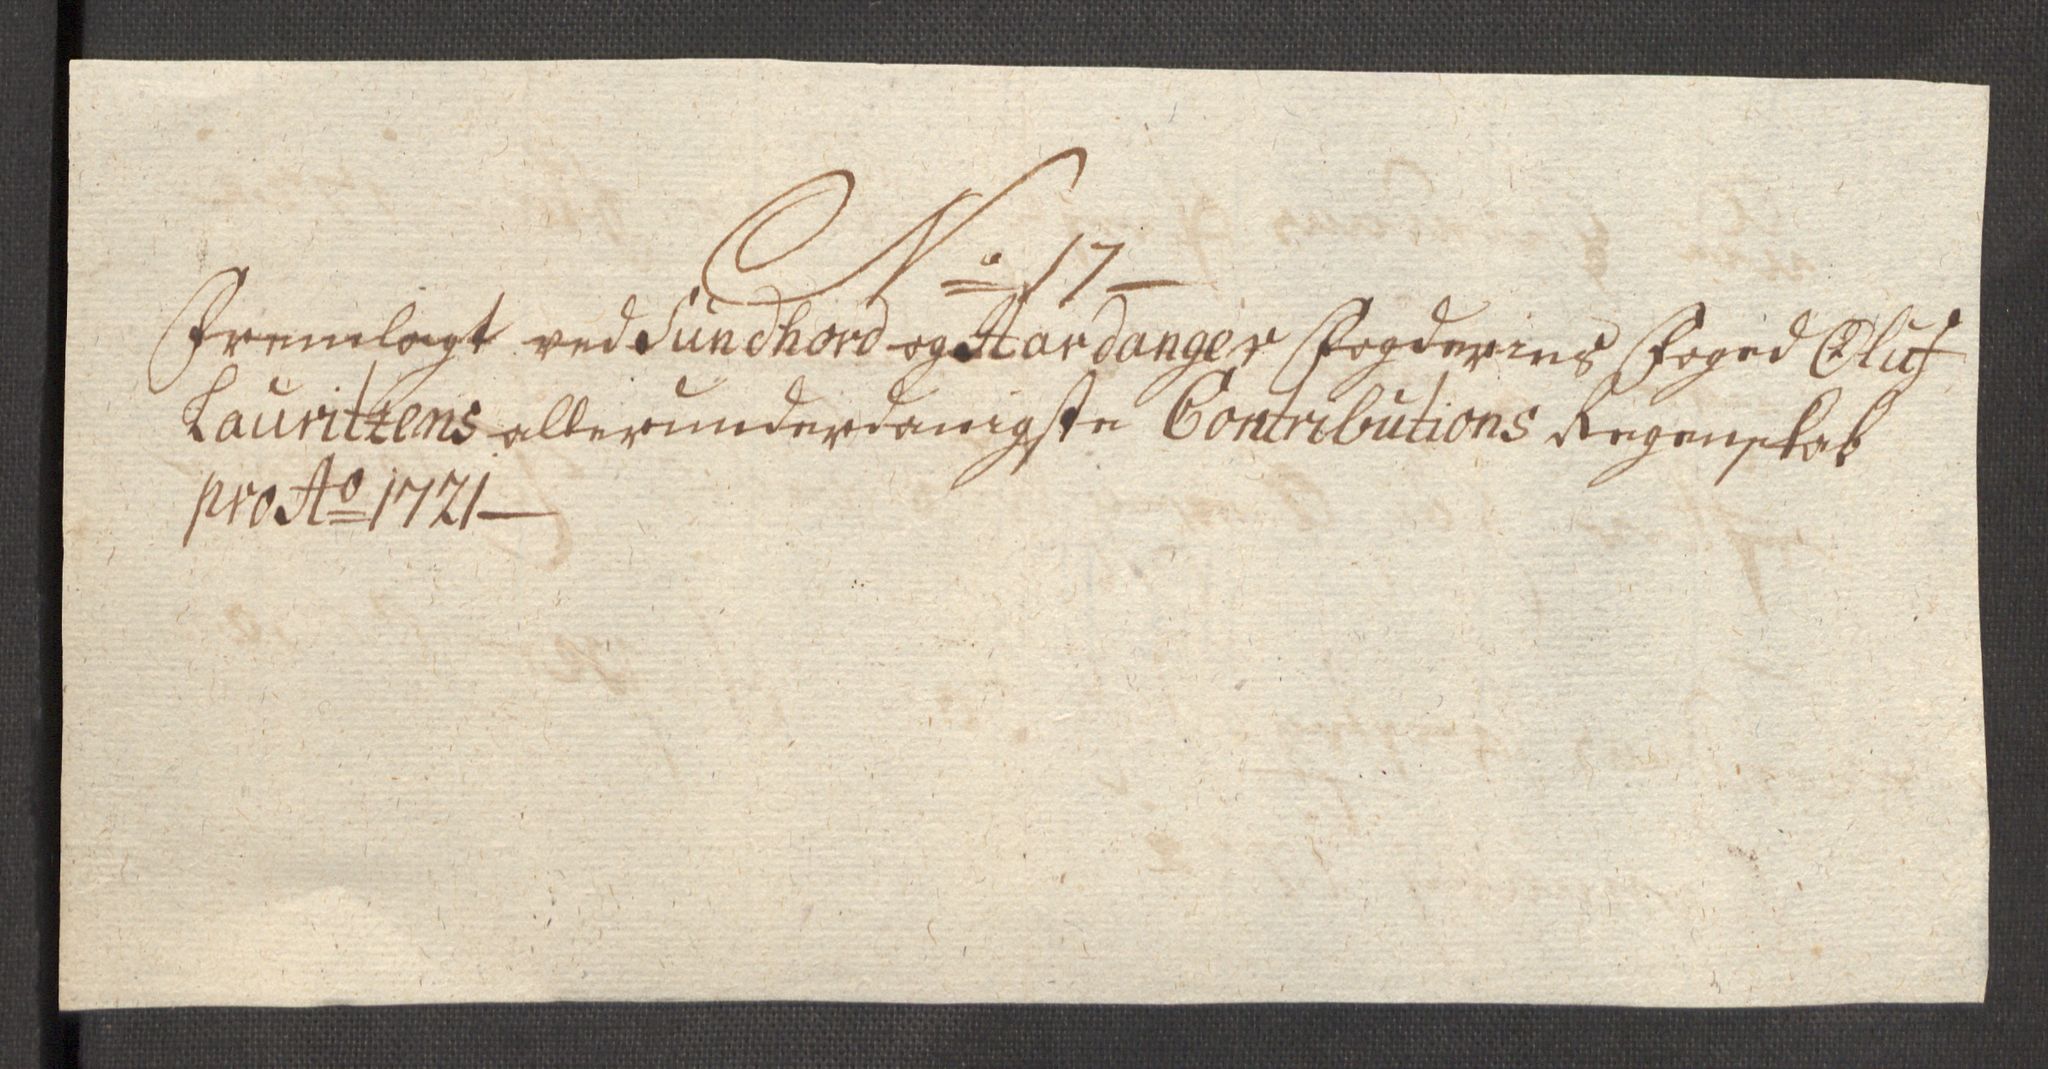 No 17
Fremlagt ved Sundhord og Hardanger Fogderies Foged Oluf
Lauritzens allerunderdanigste Contributions Regenskab
pro Ao 1721